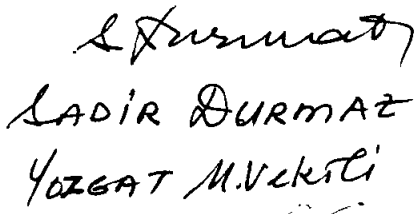 S Durmaz
SADİR DURMAZ
YOZGAT M.Vekili